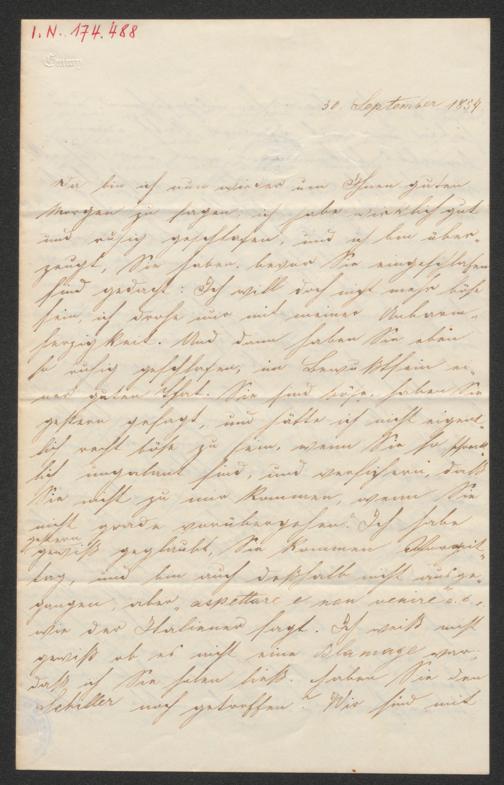 I. N. 174.488
30. September 1859
Da bin ich nun wieder um Ihnen guten
Morgen zu sagen, ich habe wirklich gut
und ruhig geschlafen, und ich bin über-
zeugt, Sie haben, bevor Sie eingeschlafen
sind gedacht: Ich will doch nicht mehr böse
sein, ich drohe nur mit meiner Unbarm-
herzigkeit. Und dann haben Sie eben
so ruhig geschlafen, im Bewußtsein ei-
ner guten That. Sie sind böse, haben Sie
gestern gesagt, und hätte ich nicht eigent-
lich recht böse zu sein, wenn Sie so schreck-
lich ungalant sind, und versichern, daß
Sie nicht zu mir kommen, wenn Sie
nicht grade vorübergehen. Ich habe
gestern
gewiß geglaubt, Sie kommen Vormit-
tag, und bin auch deßhalb nicht ausge-
gangen, aber „aspettare e non venire"
wie der Italiener sagt. Ich weiß nicht
gewiß ob es nicht eine Blamage war,
daß ich Sie holen ließ. Haben Sie den
Schiller noch getroffen? Wir sind mit